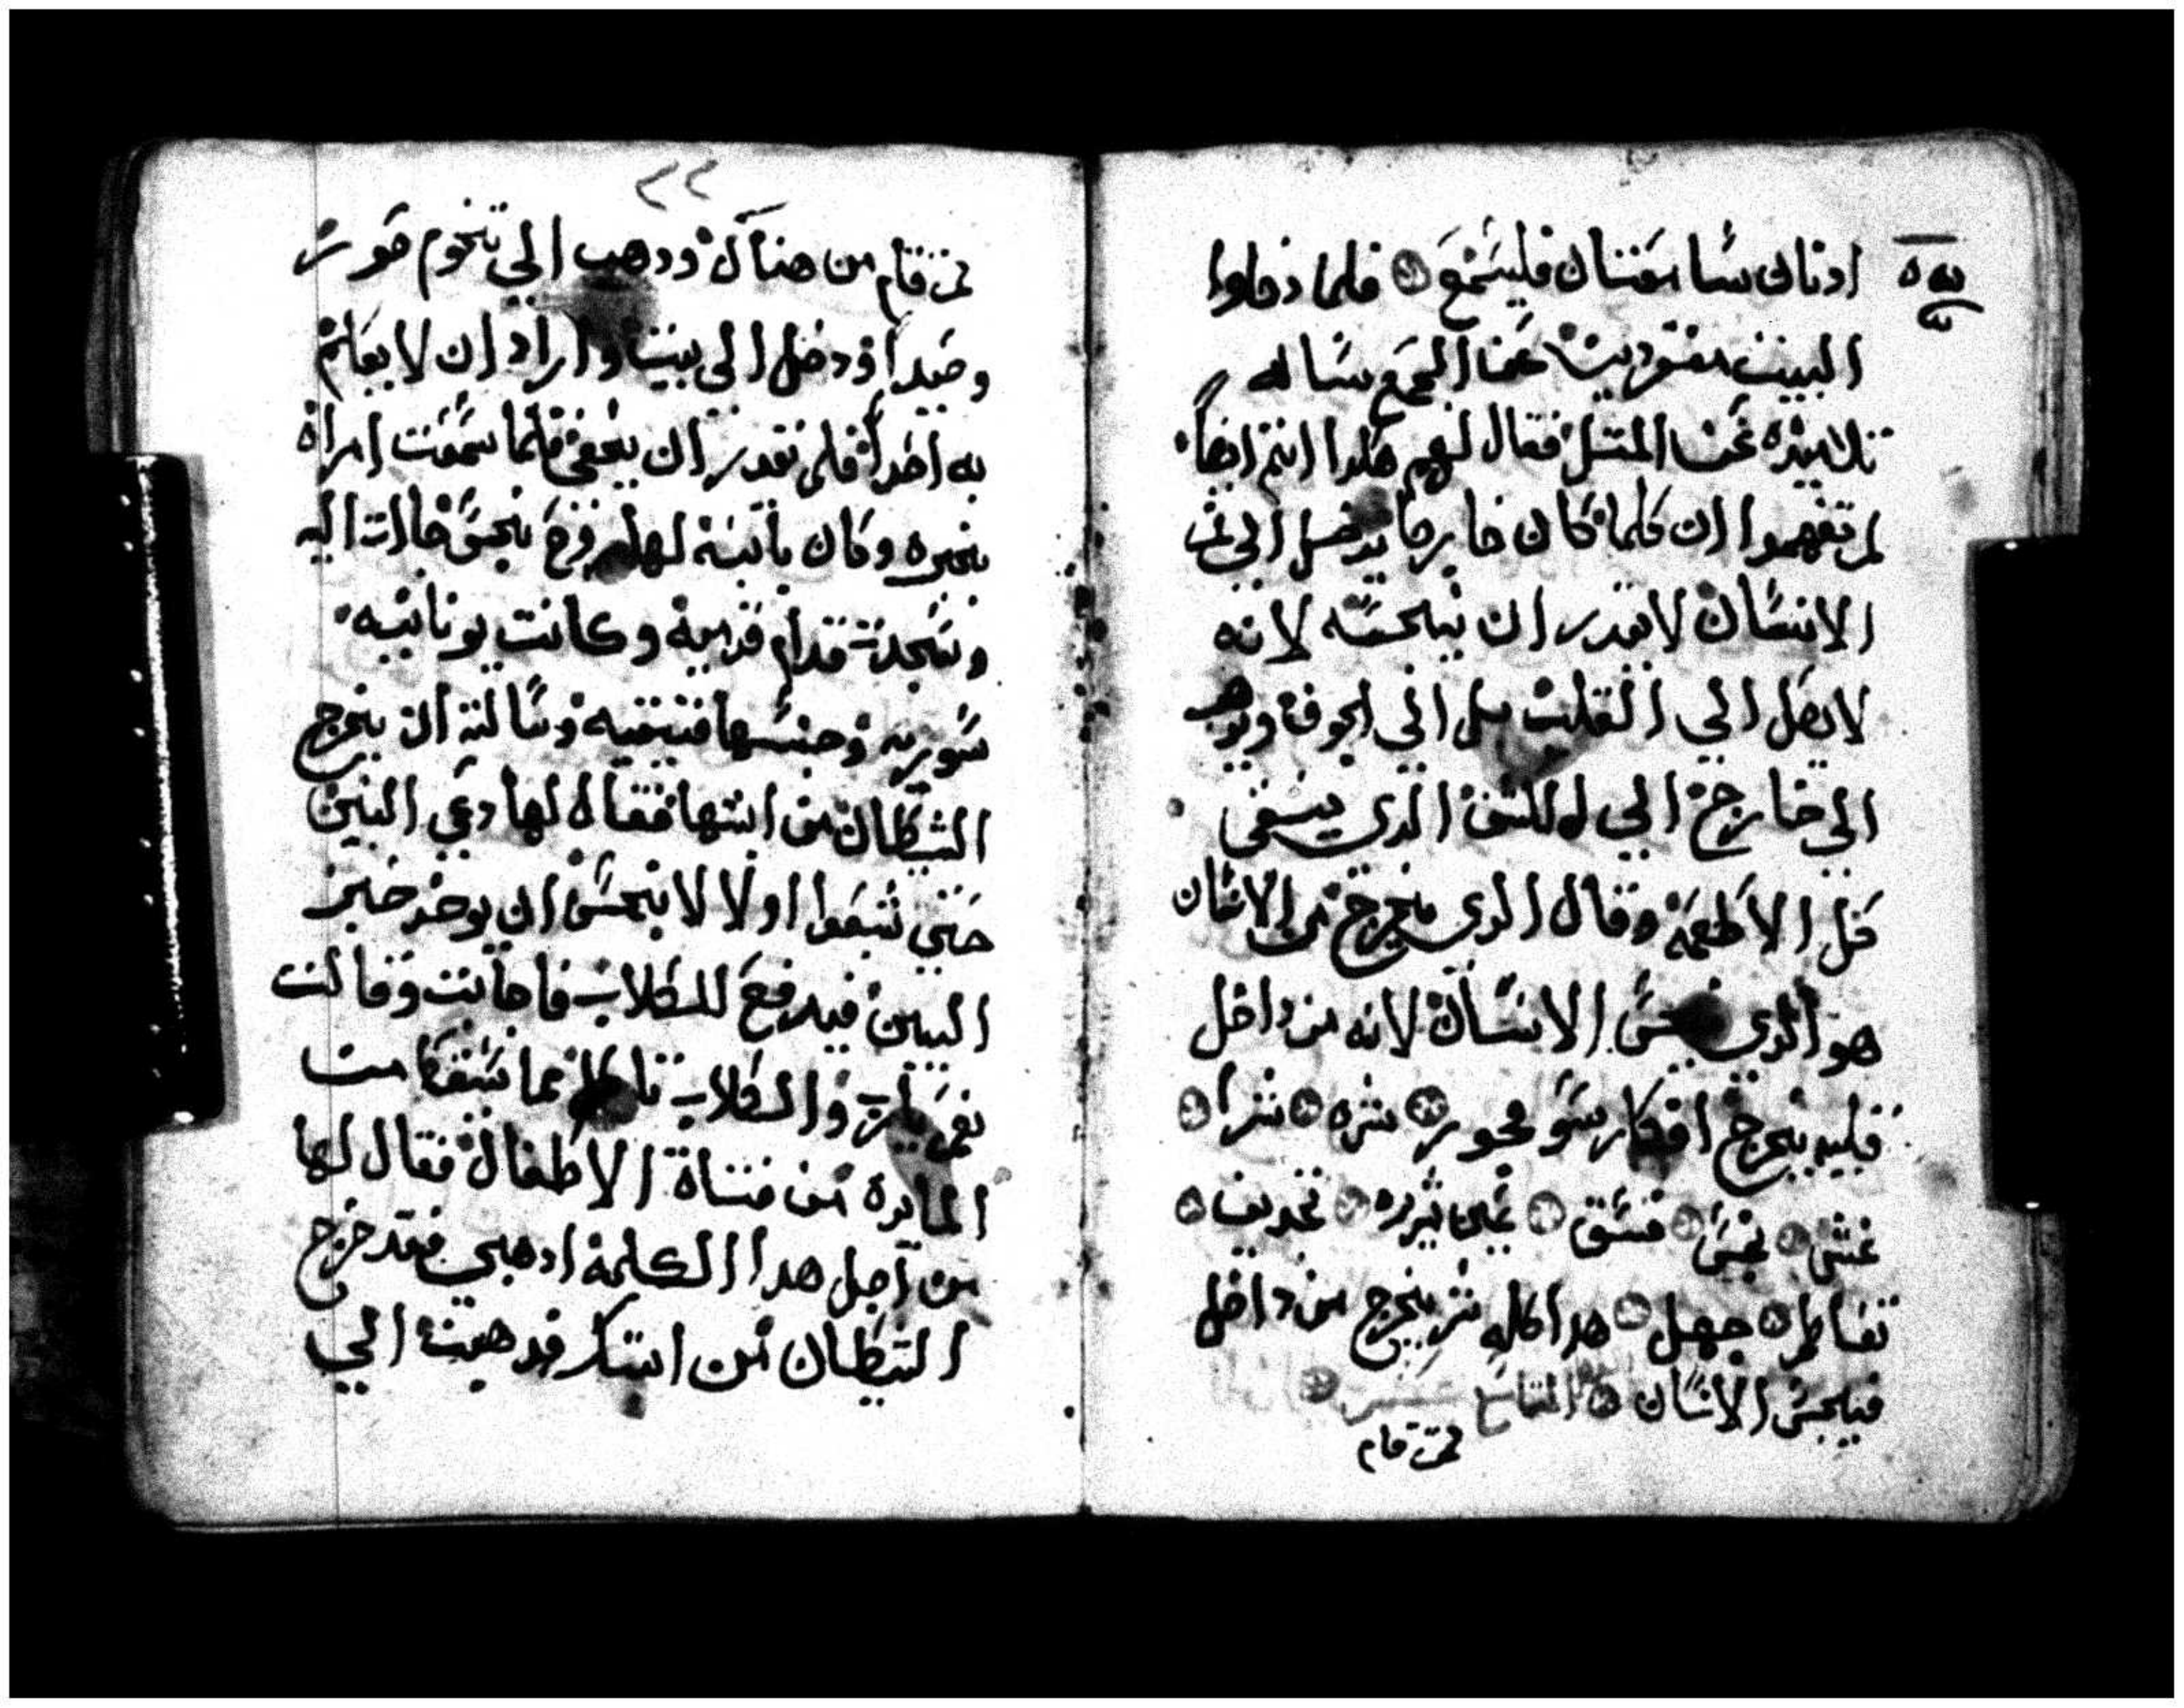 ادنان سامعتان فليسمع فلما دخلوا
البيت منفردين عن الجمع ساله
تلاميذه عن المثل فقال لهم هكدا انتم ايضاً
لم تفهموا ان كلما كان خارجا يدخل الي فم
الانسان لا يقدر ان ينجسه لانه
لا يصل الي القلب بل الي الجوف ويذهب
الي خارج الي الدي ينقي
كل الاطعمة وقال الدي يخرج من الانسان
هو الدي ينجس الانسان لانه من داخل
قلبه يخرج افكار سو فجور شره
غش نجس فسق عين شريره تجديف
تعاظم جهل هدا كله شر يخرج من داخل
فينجس الانسان
ثم قام
٢٢
ثم قام من هناك ودهب الي تخوم صور
وصيدا ودخل الي بيت واراد ان لا يعلم
به احدا فلم يقدر ان يخفي فلما سمعت امراة
بخبره وكان بابنة لها روح نجس جات اليه
وسجدت قدام قدميه وكانت يونانيه
سوريه وجنسها فينيقيه وسالته ان يخرج
الشيطان من ابنتها فقال لها دعي البنين
حتي شبعوا اولا لا يحسن ان يوخد خبز
البنين فيدفع للكلاب فاجابت وقالت
نعم يارب والكلاب تاكل مما سقط من
المايدة من فتاة الاطفال فقال لها
من اجل هدا الكلمة ادهبي فقد خرج
الشيطان من ابنتك فدهبت الي